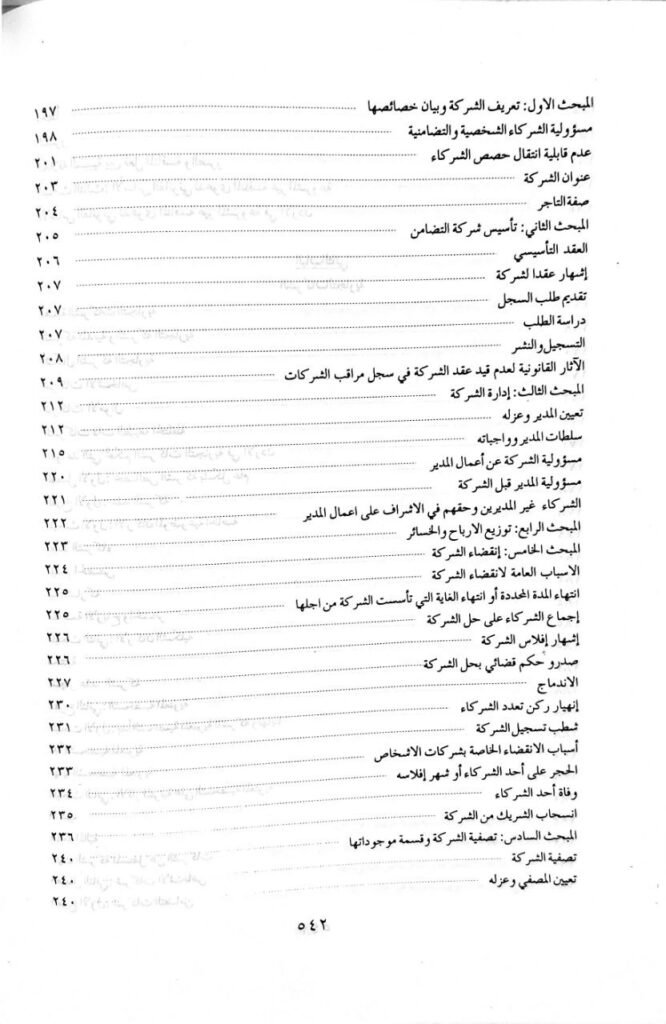 المبحث الاول: تعريف الشركة وبيان خصائصها ١٩٧
مسؤولية الشركاء الشخصية والتضامنية ١٩٨
عدم قابلية انتقال حصص الشركاء ٢٠١
عنوان الشركة ٢٠٣
صفة التاجر ٢٠٤
المبحث الثاني: تأسيس شركة التضامن ٢٠٥
العقد التأسيسي ٢٠٦
إشهار عقدا لشركة ٢٠٧
تقديم طلب السجل ٢٠٧
دراسة الطلب ٢٠٧
التسجيل والنشر ٢٠٨
الآثار القانونية لعدم قيد عقد الشركة في سجل مراقب الشركات ٢٠٩
المبحث الثالث: إدارة الشركة ٢١٢
تعيين المدير وعزله ٢١٢
سلطات المدير وواجباته ٢١٥
مسؤولية الشركة عن أعمال المدير ٢٢٠
مسؤولية المدير قبل الشركة ٢٢١
الشركاء غير المديرين وحقهم في الاشراف على اعمال المدير ٢٢٢
المبحث الرابع: توزيع الارباح والخسائر ٢٢٣
المبحث الخامس: إنقضاء الشركة ٢٢٤
الاسباب العامة لانقضاء الشركة ٢٢٥
انتهاء المدة المحددة أو انتهاء الغاية التي تأسست الشركة من اجلها ٢٢٥
إجماع الشركاء على حل الشركة ٢٢٦
إشهار إفلاس الشركة ٢٢٦
صدرو حكم قضائي بحل الشركة ٢٢٧
الاندماج ٢٣٠
إنهيار ركن تعدد الشركاء ٢٣١
شطب تسجيل الشركة ٢٣٢
أسباب الانقضاء الخاصة بشركات الاشخاص ٢٣٣
الحجر على أحد الشركاء أو شهر إفلاسه ٢٣٤
وفاة أحد الشركاء ٢٣٥
انسحاب الشريك من الشركة ٢٣٦
المبحث السادس: تصفية الشركة وقسمة موجوداتها ٢٤٠
تصفية الشركة ٢٤٠
تعيين المصفي وعزله ٢٤٠
٥٤٢